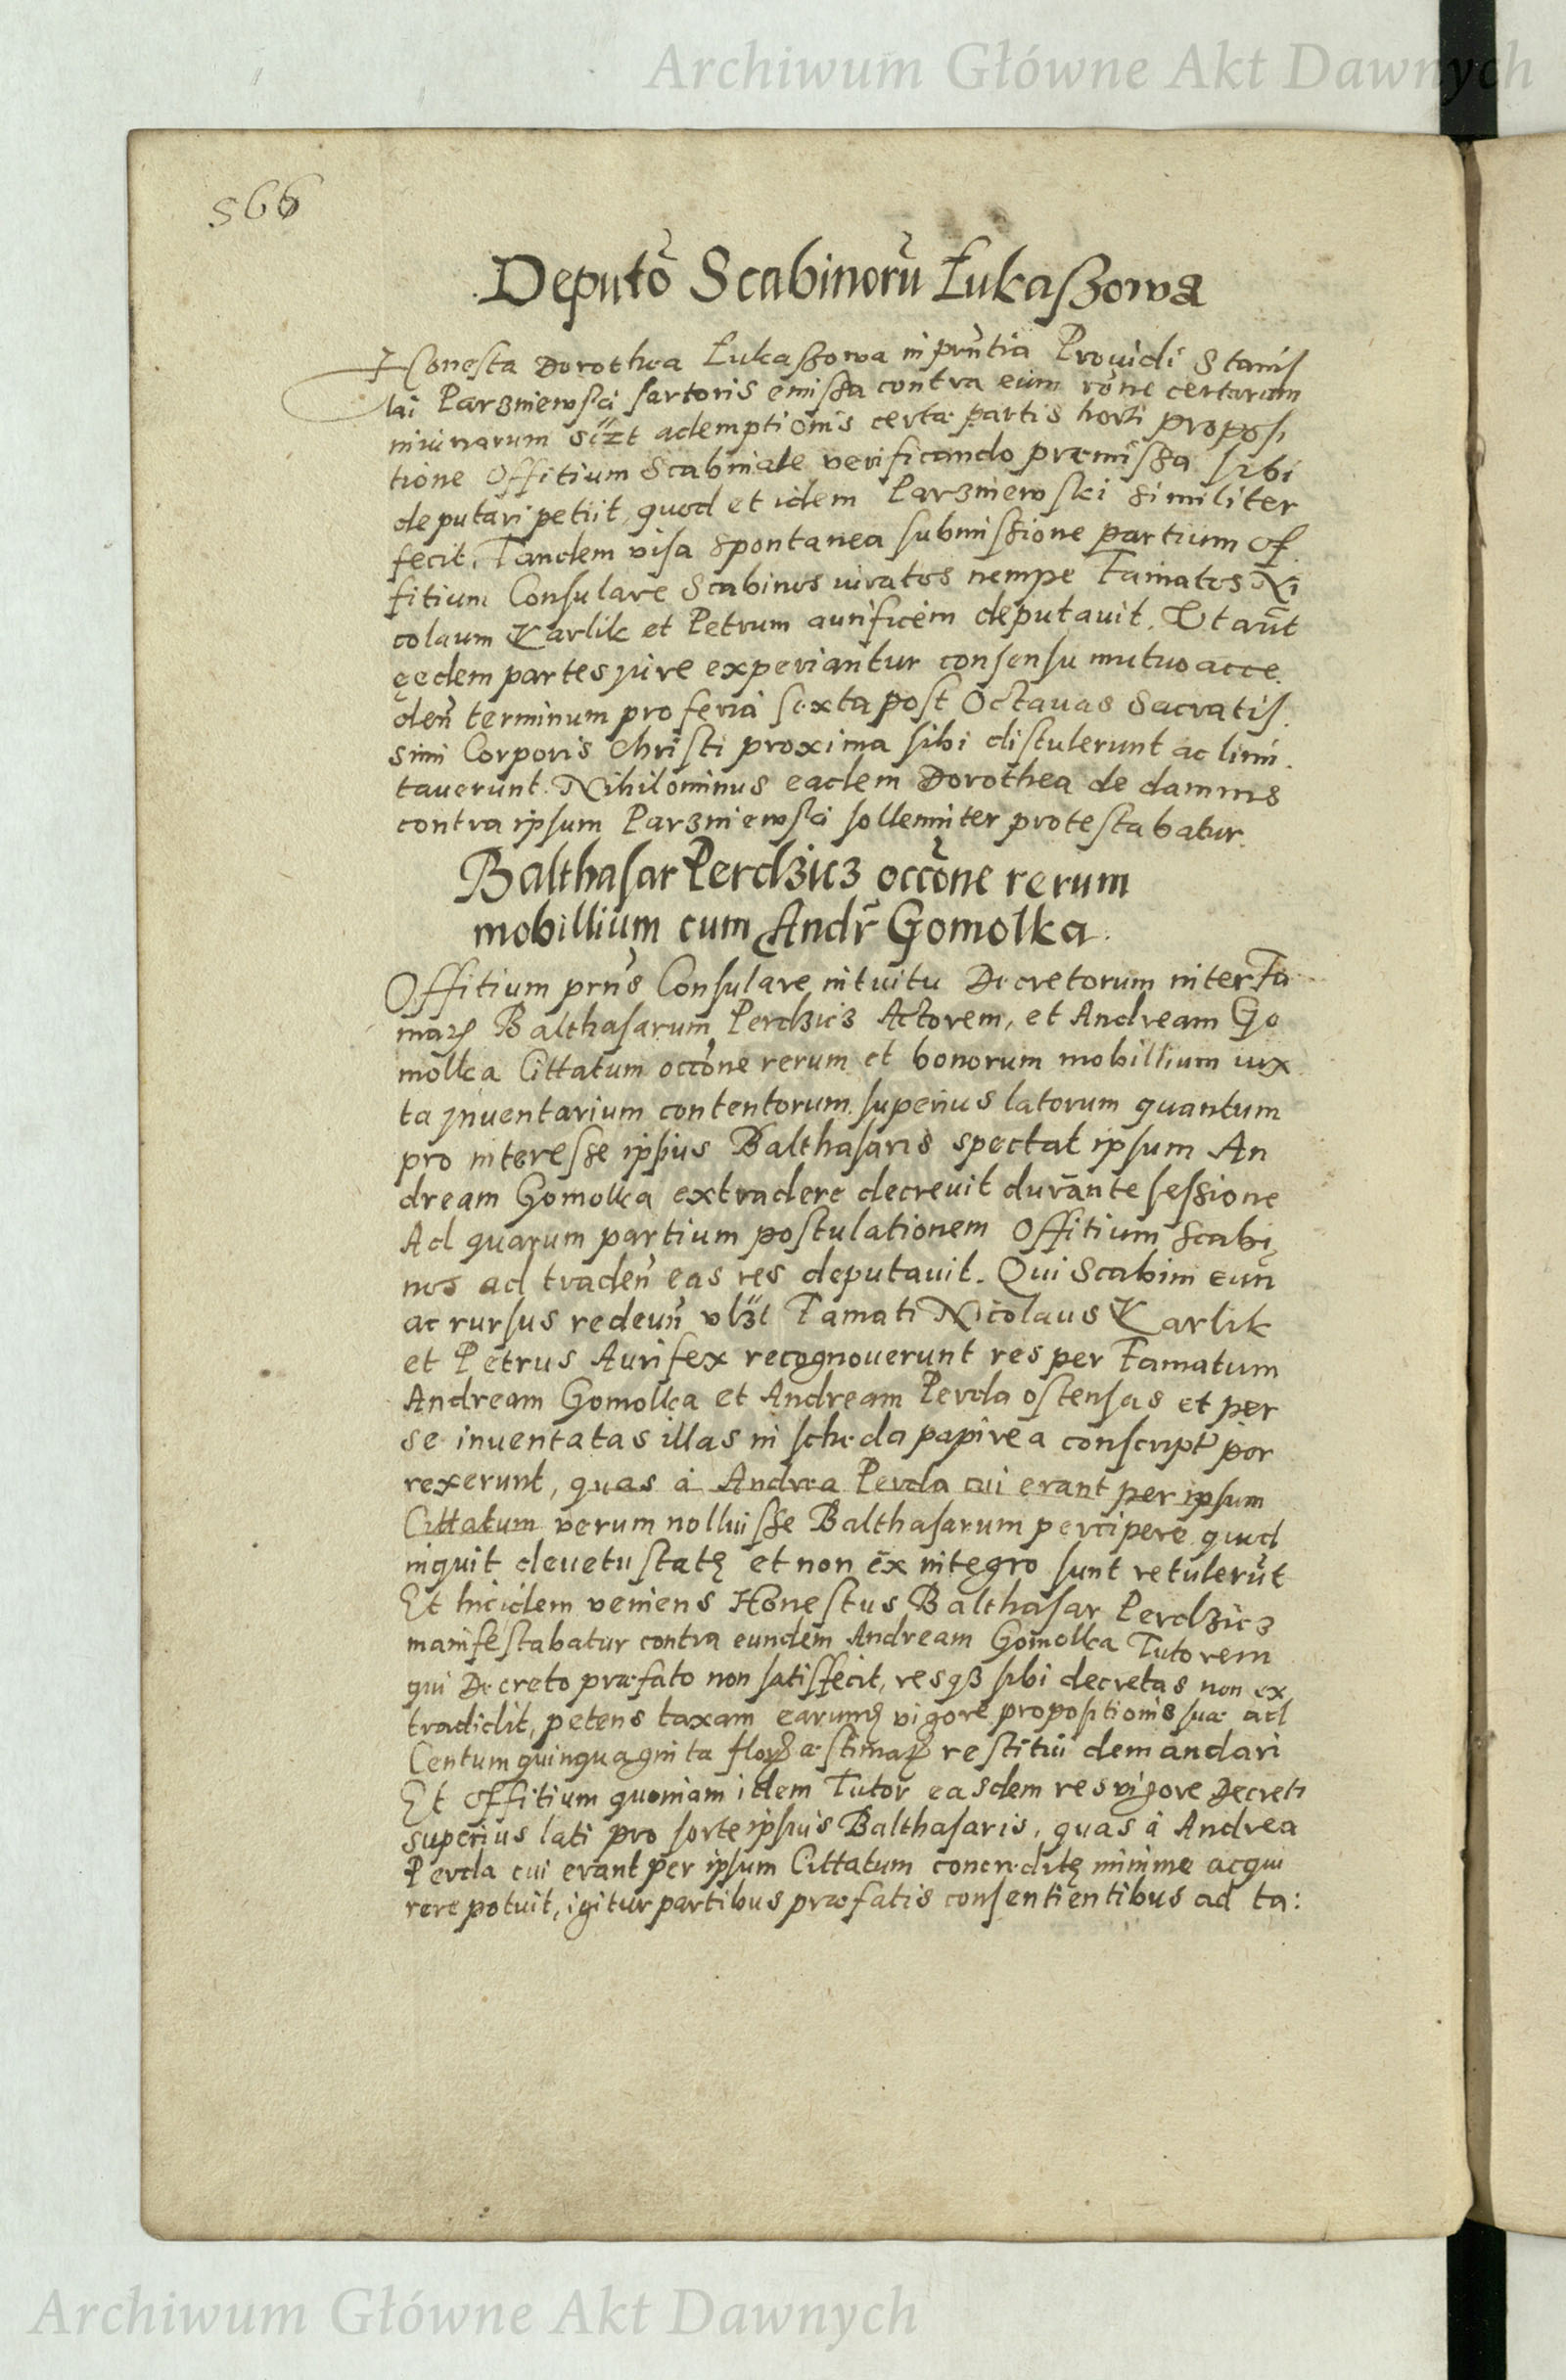 Archiwum Główne Akt Dawnych
566
Deputõ Scabinorũ Łukaszowa
Honesta Dorothea Łukaszowa in prñtia Prouidi Stanis
lai Parzniewski sartoris emissa contra eum rõne certarum
iniuriarum adem­ptionis certæ partis horti proposi
tione Offitium Scabinale verificando præmissa sibi
deputari petiit, quod et idem Parzniewski similiter
fecit. Tandem visa spontanea submissione partium of
fitium Consulare Scabinos iuratos nempe Famatos Ni
colaum Karlik et Petrum aurificem deputauit. Vt aũt
eędem partes jure experiantur consensu mutuo acce
deñ terminum pro feria sexta post Octauas Sacratis
simi Corporis Christi proxima sibi distulerunt ac limi
tauerunt. Nihilominus eadem Dorothea de damnis
contra ipsum Parzniewski sollemniter protestabatur.
Balthasar Perdzicz occõne rerum
mobillium cum Andr̃ Gomolka.
Offitium prñs Consulare intuitu Decretorum inter Fa
Balthasarum Perdzicz Actorem, et Andream Go
molka Cittatum occõne rerum et bonorum mobillium iux
ta jnventarium contentorum superius latorum quantum
pro interesse ipsius Balthasaris spectat ipsum An
dream Gomolka extradere decreuit durante sessione
Ad quarum partium postulationem Offitium Scabi
nos ad tradeñ eas res deputauit. Qui Scabini euñ
ac rursus redeuñ Famati Nicolaus Karlik
et Petrus Aurifex recognouerunt res per Famatum
Andream Gomolka et Andream Perda ostensas et per
se inuentatas illas in scheda papirea conscript por
rexerunt, quas à Andrea Perda cui erant per ipsum
Cittatum verum nolluisse Balthasarum percipere quod
inquit de uetustatę et non ex integro sunt retulerũt
Et hic idem veniens Honestus Balthasar Perdzicz
manifestabatur contra eundem Andream Gomolka Tutorem
qui Decreto præfato non satisfecit, resqз sibi decretas non ex
tradidit, petens taxam earum vigore propositionis suæ ad
Centum quinquaginta restitui demandari
Et offitium quoniam idem Tutor easdem res vigore Decreti
superius lati pro sorte ipsius Balthasaris, quas à Andrea
Perda cui erant per ipsum Cittatum concreditę minime acqui
rere potuit, igitur partibus præfatis consentientibus ad ta:
Archiwum Główne Akt Dawnych